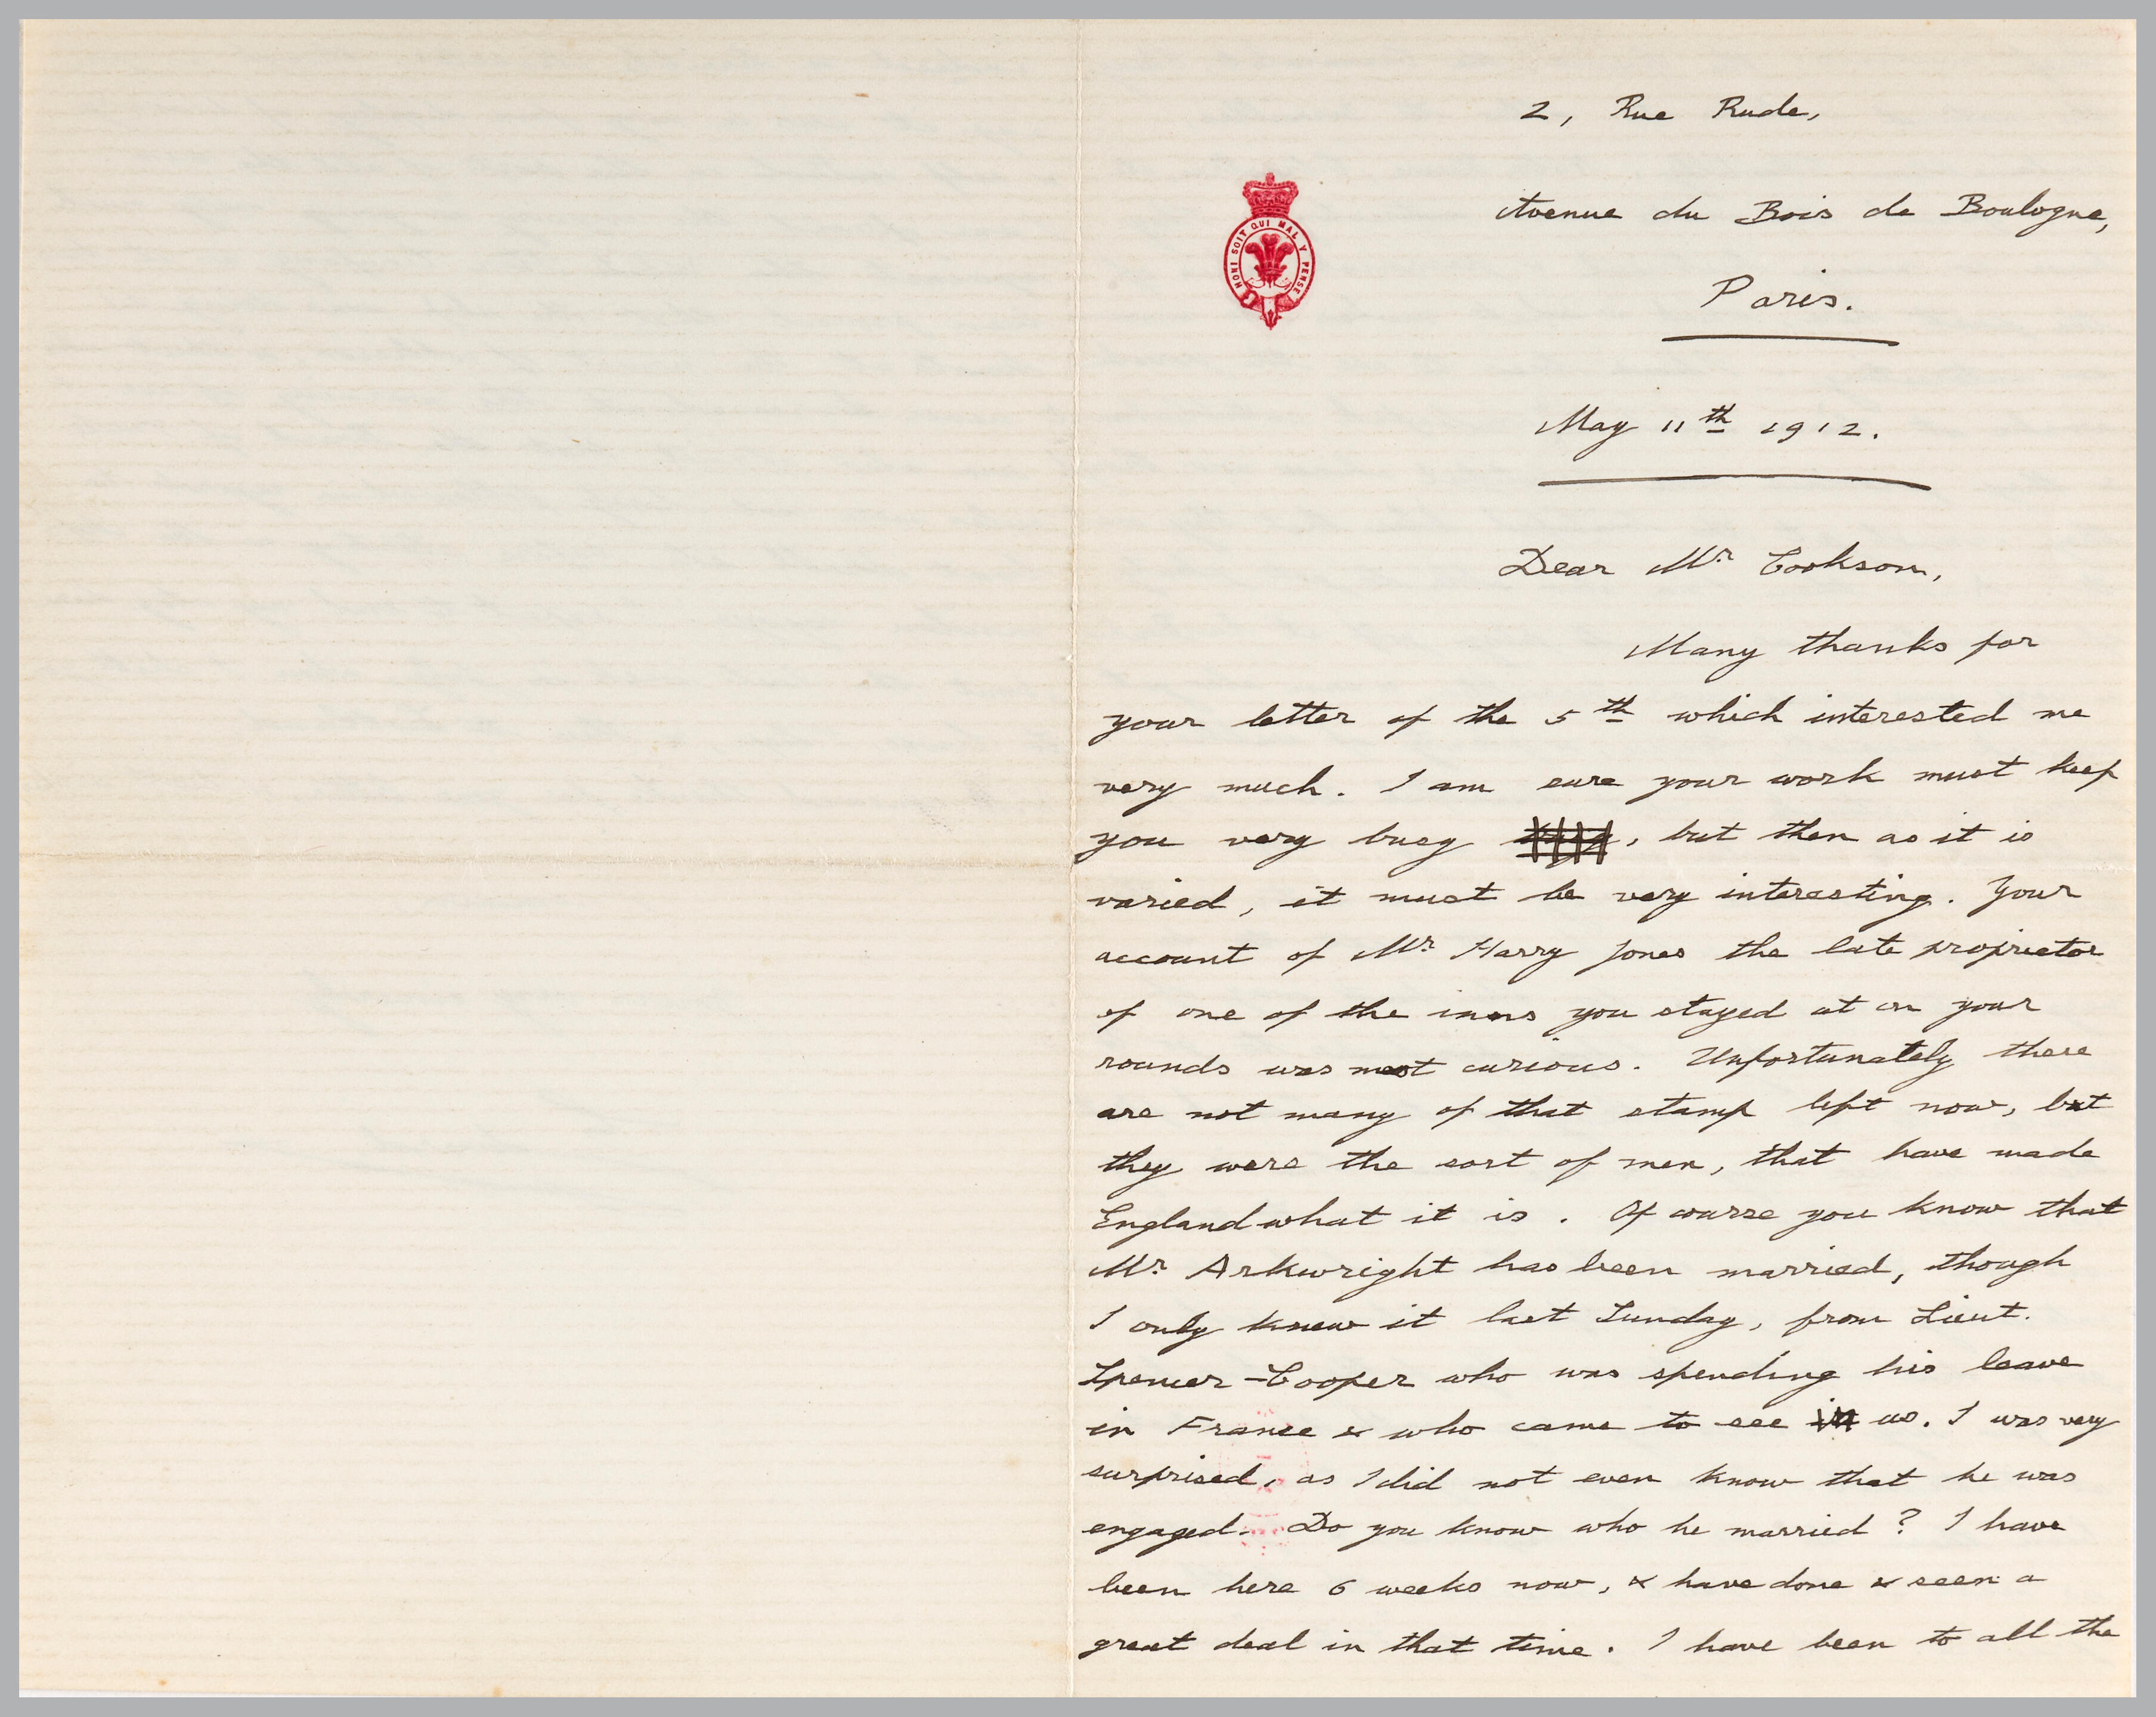 2, Rue Rude,
Avenue du Bois de Boulogne,
Paris.
HONI SOIT QUI MAL Y PENSE
May 11th 1912.
Dear Mr Cookson,
Many thanks for
your letter of the 5th which interested me
very much. I am sure your work must keep
you very busy , but then as it is
varied, it must be very interesting. Your
account of Mr Harry Jones the late proprietor
of one of the inns you stayed at on your
rounds was most curious. Unfortunately there
are not many of that stamp left now, but
they were the sort of men, that have made
England what it is . Of course you know that
Mr Arkwright has been married, though
I only knew it last Sunday, from Lieut.
Spencer-Cooper who was spending his leave
in France & who came to see us. I was very
surprised, as I did not even know that he was
engaged. Do you know who he married ? I have
been here 6 weeks now, & have done & seen a
great deal in that time. I have been to all the